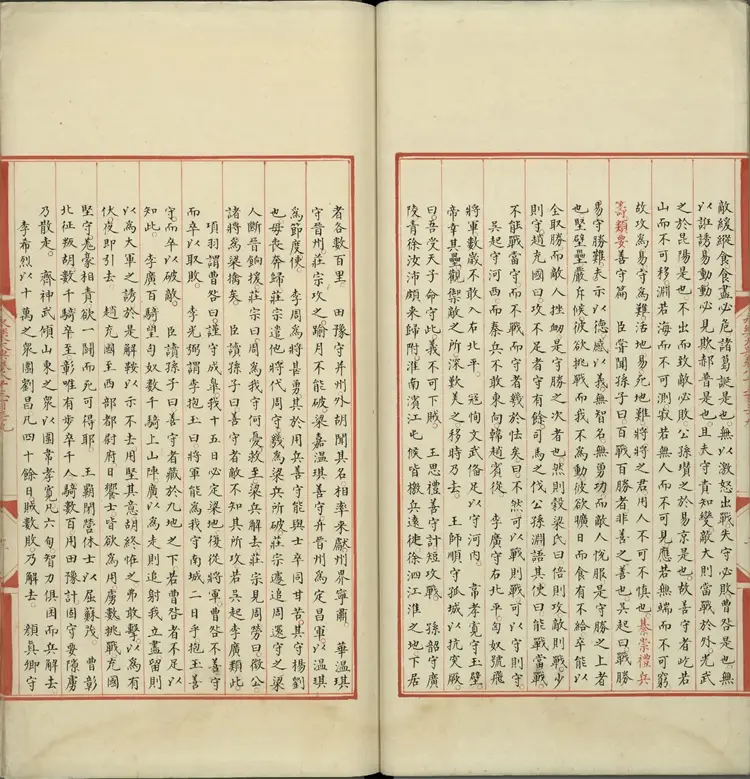 敵緩縱食食盡必危諸葛誕是也無以激怒出戰失守必敗曹咎是也無
以誑誘易動動必見欺郝普是也且夫守貴知變敵大則當戰於外光武
之於昆陽是也不出而致敵必敗公孫瓚之於易京是也故善守者屹若
山而不可移淵若海而不可測寂若無人而不可見應若無端而不可窮
故攻為易守為難活地易死地難將將之君用人不可不慎也綦崇禮兵
籌類要善守篇 臣甞聞孫子曰百戰百勝者非善之善也吳起曰戰勝
易守勝難夫示以德感以義無智名無勇功而敵人悅服是守勝之上者
也堅壁壘嚴斥候彼欲挑戰而我不為動彼欲曠日而食有不給卒能以
全取勝而敵人挫衂是守勝之次者也然則榖梁氏曰倍則攻敵則戰少
則守趙充國曰攻不足者守有餘司馬之伐公孫淵語其使曰能戰當戰
不能戰當守而不戰而守者幾於怯矣曰不然可以戰則戰可以守則守
 吳起守河西而秦兵不敢東向韓趙賓從 李廣守右北平匈奴號飛
將軍數歲不敢入右北平 冦恂文武偹足以守河内 韋孝寬守玉壁
帝幸其壘觀禦敵之所深歎美之移時乃去 王師順守孤城以抗突厥
曰吾受天子命守此義不可下賊 王思禮善守計短攻戰 孫韶守廣
陵青徐汝沛頗來歸附淮南濱江屯候皆徹兵遠徙徐泗江淮之地下居
者各數百里 田豫守并州外胡聞其名相率來獻州界寧肅 華温琪
守晉州莊宗攻之踰月不能破梁嘉温琪善守升晉州為定昌軍以温琪
為節度使 李周為將甚勇其於用兵善守能與士卒同甘苦其守楊劉
也毋喪奔歸莊宗遣他將代周守幾為梁兵所破莊宗遽追周還守之梁
人斷晉餉援莊宗曰周為我守何憂救至梁兵解去莊宗見周勞曰微公
諸將為梁擒矣 臣讀孫子曰善守者敵不知其所攻若吳起李廣類此
 項羽謂曹咎曰謹守成皋我十五日必定梁地復從將軍曹咎不善守
而卒以取敗 李光弼謂李抱玉曰將軍能為我守南城二日乎抱玉善
守而卒以破敵 臣讀孫子曰善守者藏於九地之下若曹咎者不足以
知此 李廣百騎望匈奴數千騎上山陣廣以為走則追射我立盡留則
以為大軍之誘於是解鞍以示不去用堅其意胡終怪之弗敢擊以為有
伏夜即引去 趙充國至西部都尉府日饗士皆欲為用虜數挑戰充國
堅守羗豪相責欲一鬭而死可得耶 王覇閉營休士以屈蘇茂 曹彰
北征叛胡數千騎卒至彰唯有步卒千人騎數百用田豫計固守要隙虜
乃散走 齊神武傾山東之衆以圍韋孝寬凡六旬智力俱困而兵解去
 李希烈以十萬之衆圍劉昌凡四十餘日賊數敗乃解去 顔真卿守